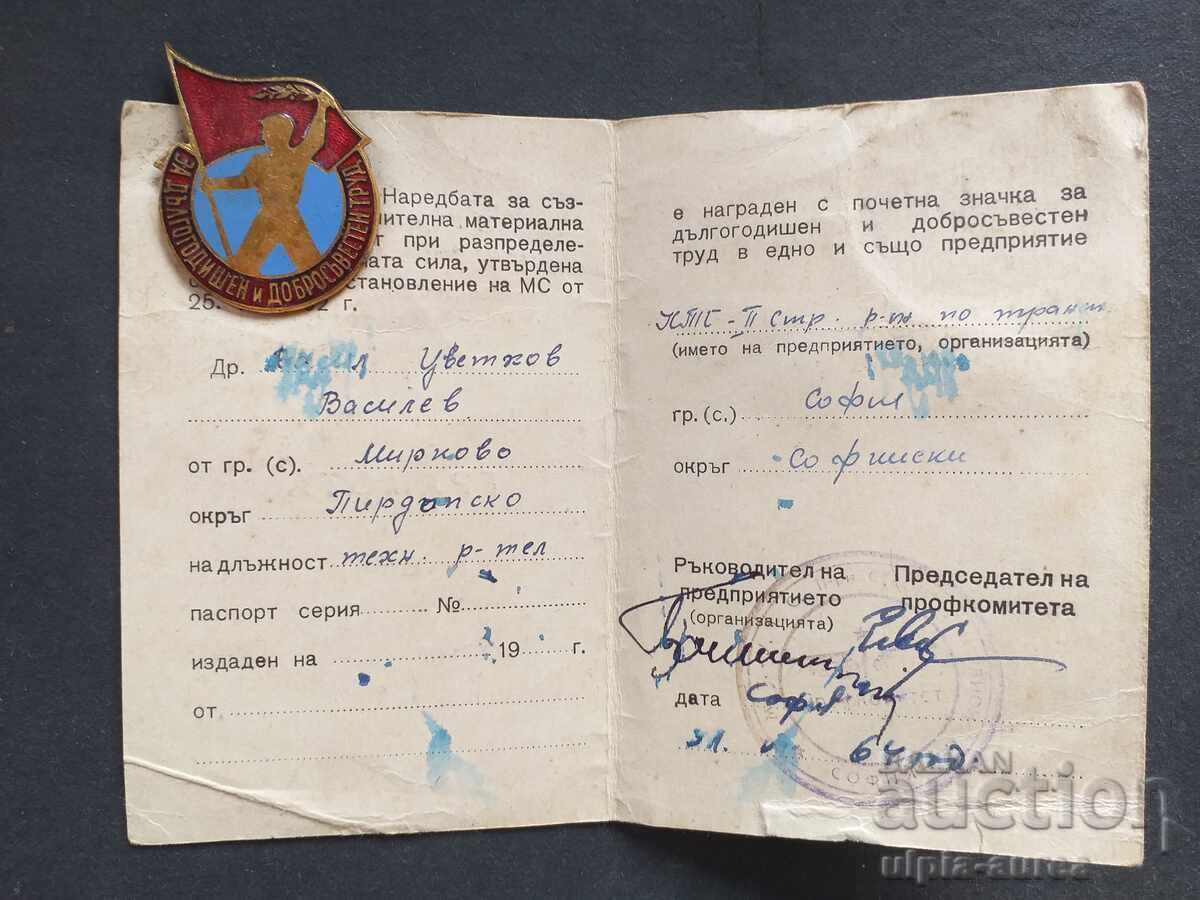 ЗА ДЪЛГОГОДИШЕН И ДОБРОСЪВЕСТЕН ТРУД
Наредбата за съз-
нителна материална
т при разпределе-
ната сила, утвърдена
становление на МС от
25. 2 г.
Др. Цветков
Василев
от гр. (с). Мирково
окръг Пирдопско
на длъжност техн. р-тел
паспорт серия №
издаден на 19 г.
от
е награден с почетна значка за
дългогодишен и добросъвестен
труд в едно и също предприятие
II стр. р-н по
(името на предприятието, организацията)
гр. (с.) София
окръг Софийски
Ръководител на
предприятието
(организацията)
Председател на
профкомитета
дата София
64 год
СОФИЯ
BALKAN
auction
ulpia-aurea